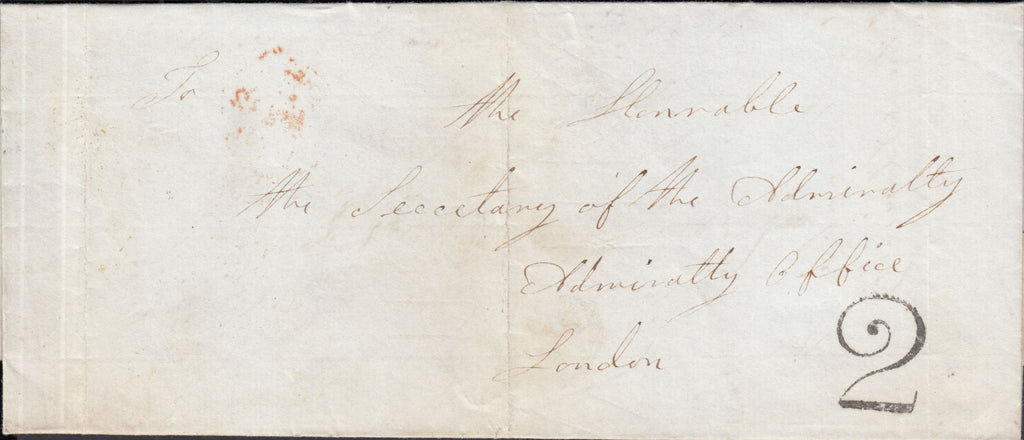 To
the Honnrable
the Seccetany of the Admiralty
Admiralty Office
London
2